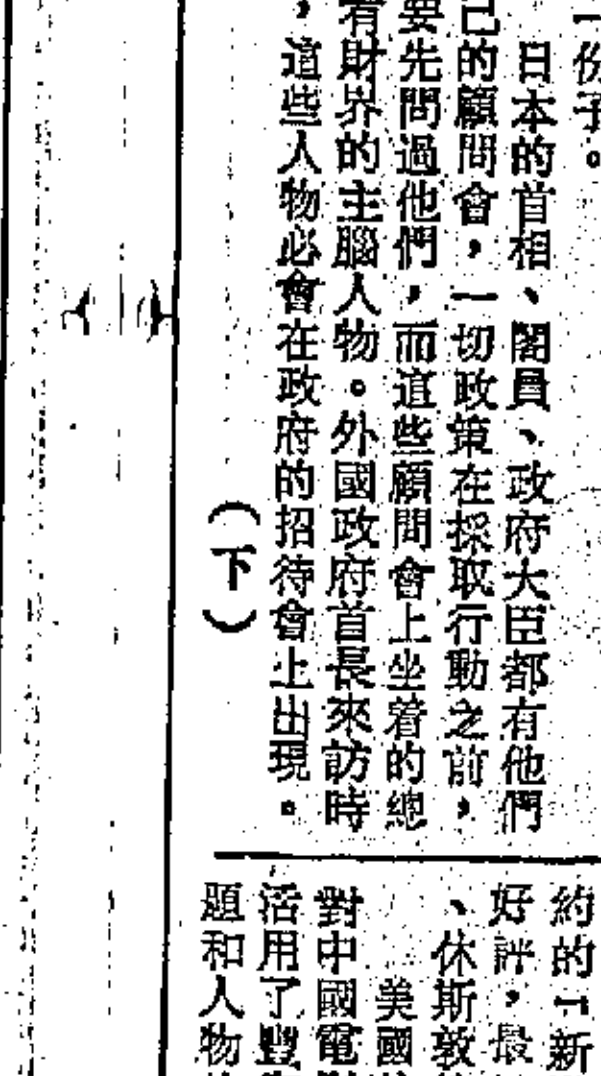 一份子。
日本的首相、閣員、政府大臣都有他們
己的顧問會,一切政策在採取行動之前,
要先問過他們,而這些顧問會上坐着的總
有財界的主腦人物。外國政府首長來訪時
,這些人物必會在政府的招待會上出現。
(下)
約的「新
好評,最
、休斯敦
美國
對中國電
活用了豐
題和人物